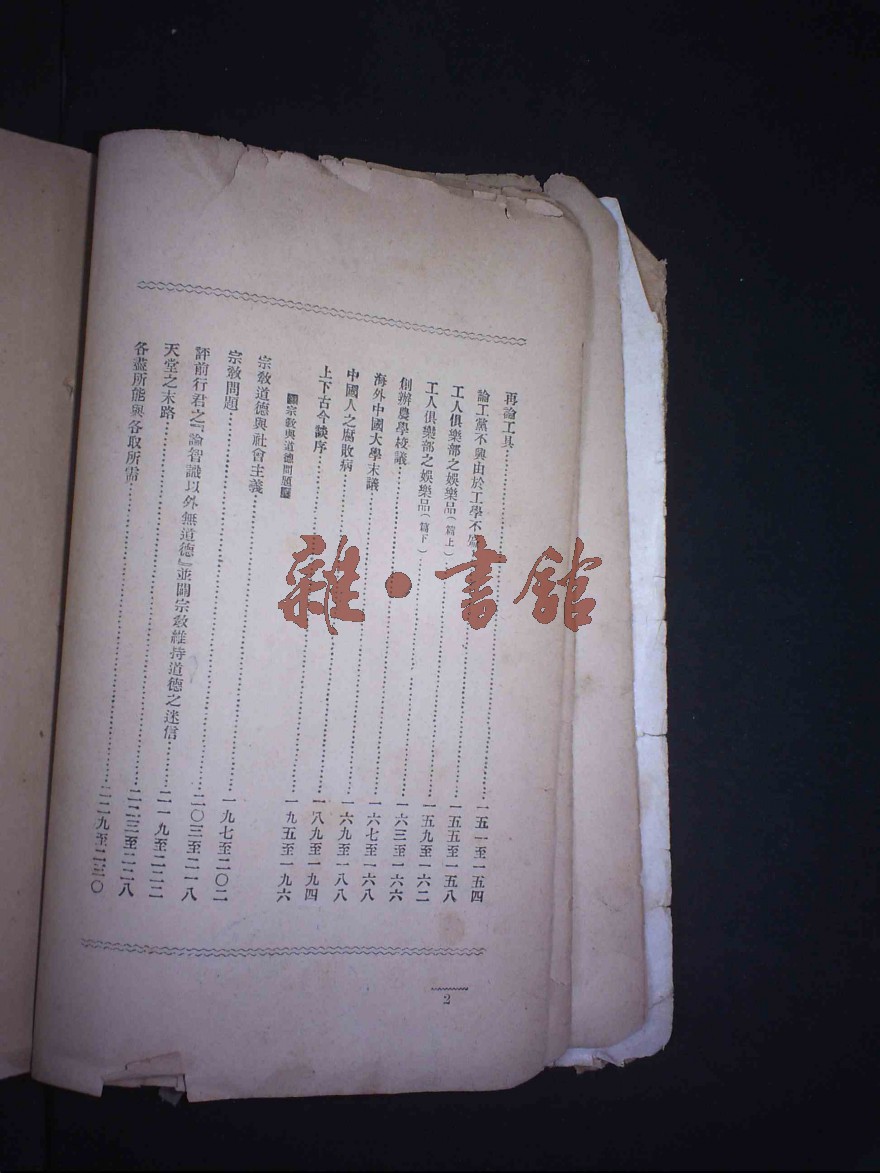 再論工具……一五一至一五四
論工黨不興由於工學不……一五五至一五八
工人俱樂部之娛樂品（篇上）……一五九至一六二
工人俱樂部之娛樂品（篇下）……一六三至一六六
創辦農學校議……一六七至一六八
海外中國大學末議……一六九至一八八
中國人之腐敗病……一八九至一九四
上下古今談序……一九五至一九六
宗教與道德問題
宗教道德與社會主義……一九七至二〇二
宗教問題……二〇三至二一八
評前行君之『論智識以外無道德』並闢宗教維持道德之迷信……二一九至二二二
天堂之末路……二二三至二二八
各盡所能與各取所需……二二九至二三〇
2
雜·書館